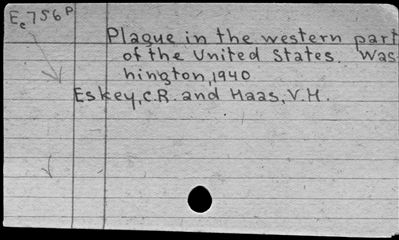 Ec756P
Plague in the western part
of the United States. Was
hington, 1940
Eskey, C.R. and Haas, V.H.